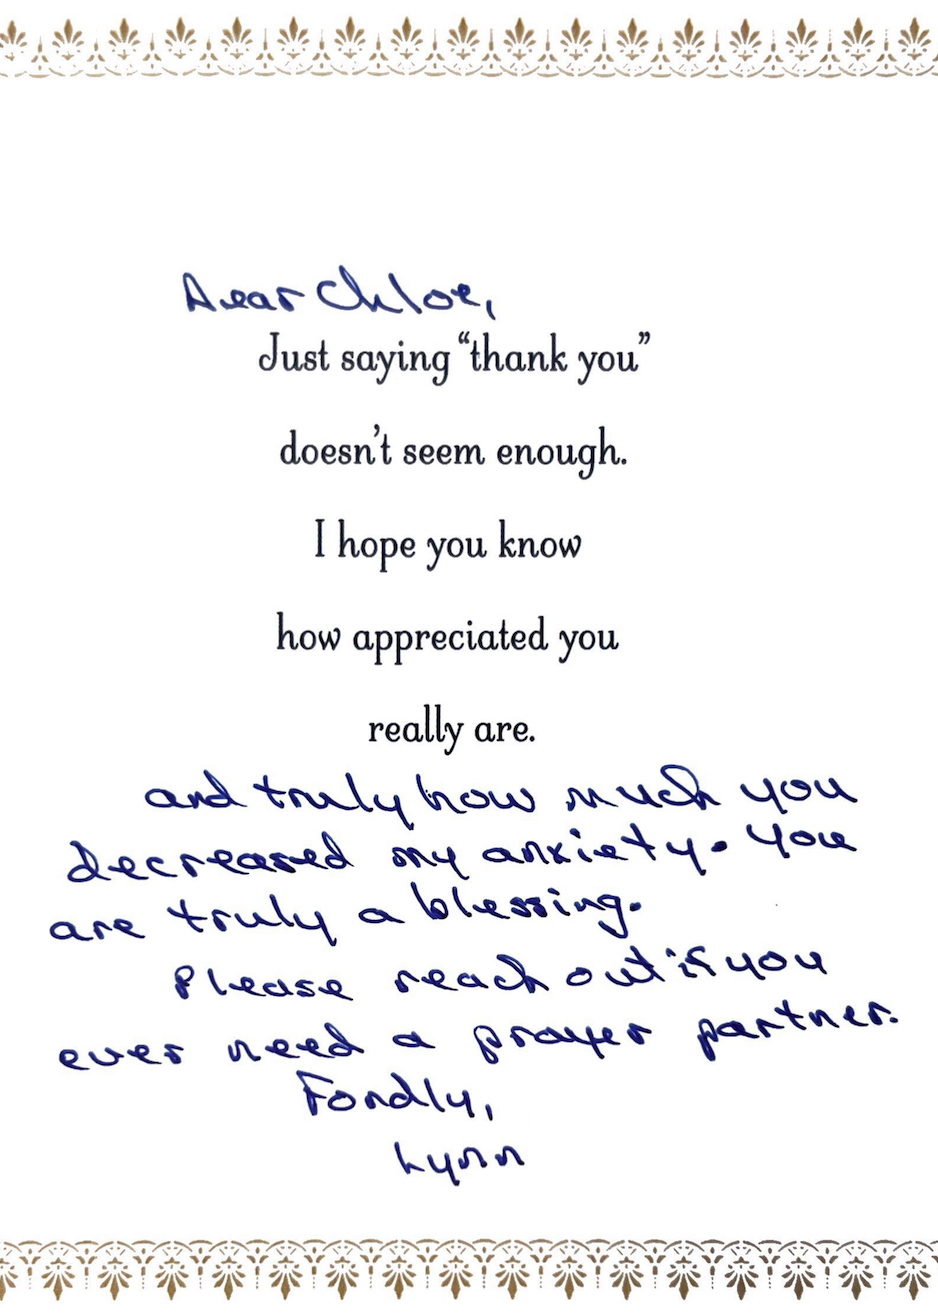 Dear Chloe,
Just saying “thank you”
doesn’t seem enough.
I hope you know
how appreciated you
really are.
and truly how much you
decreased my anxiety. You
are truly a blessing.
Please reach out if you
ever need a prayer partner.
Fondly,
Lynn